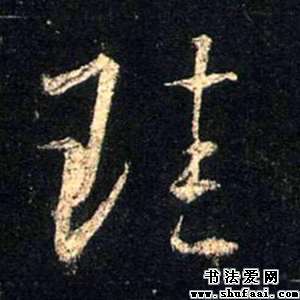 珪
书法爱网
www.shufaai.com